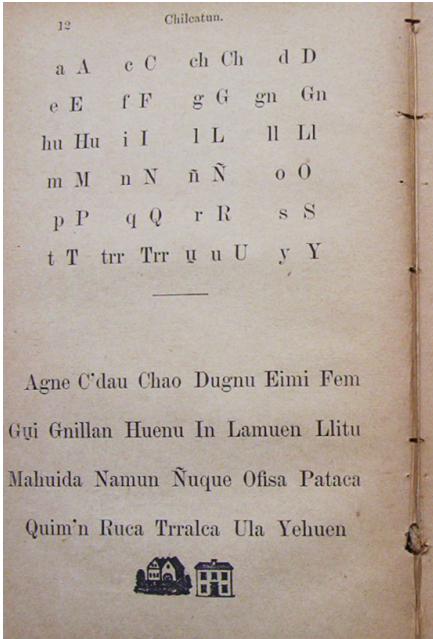 12 Chilcatun.
a A c C ch Ch d D
e E f F g G gn Gn
hu Hu i I l L ll Ll
m M n N ñ Ñ o O
p P q Q r R s S
t T trr Trr u̱ u U y Y
Agne C'dau Chao Dugnu Eimi Fem
Gu̱i Gnillan Huenu In Lamuen Llitu
Mahuida Namun Ñuque Ofisa Pataca
Quim'n Ruca Trralca Ula Yehuen